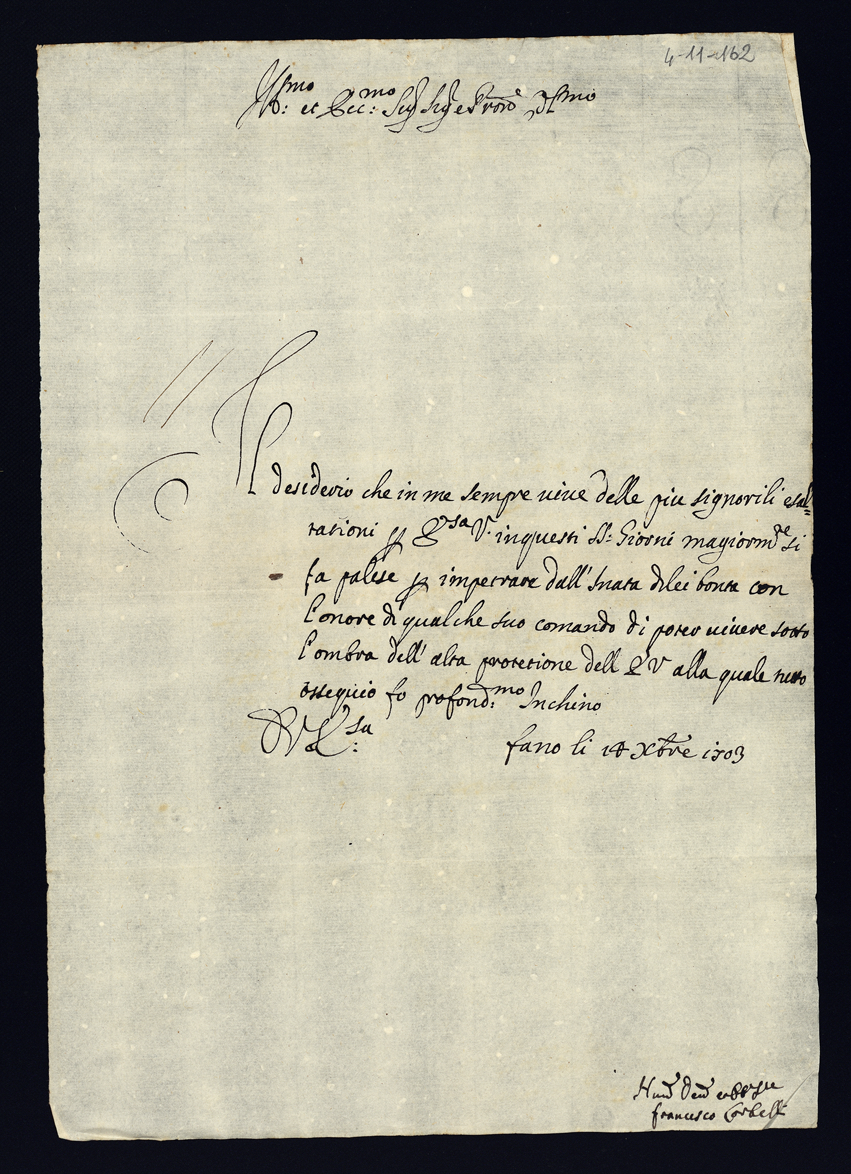 4-11-162
Ill.mo et Ecc.mo Sig.r Sig.r e Pron.e Col.mo
Il desiderio che in me sempre uiue delle piu signorili esal=
tationi p E.sa V. in questi S.ti Giorni magiorm.te si
fa palese p impetrare dall'Inata di lei bonta con
l'onore di qualche suo comando di poter uiuere sotto
l'ombra dell'alta protetione dell E V alla quale tutto
ossequio fo profond.mo Inchino
D V E.sa
fano li 14 Xbre 1703
Hum Deu
francesco Corbelli